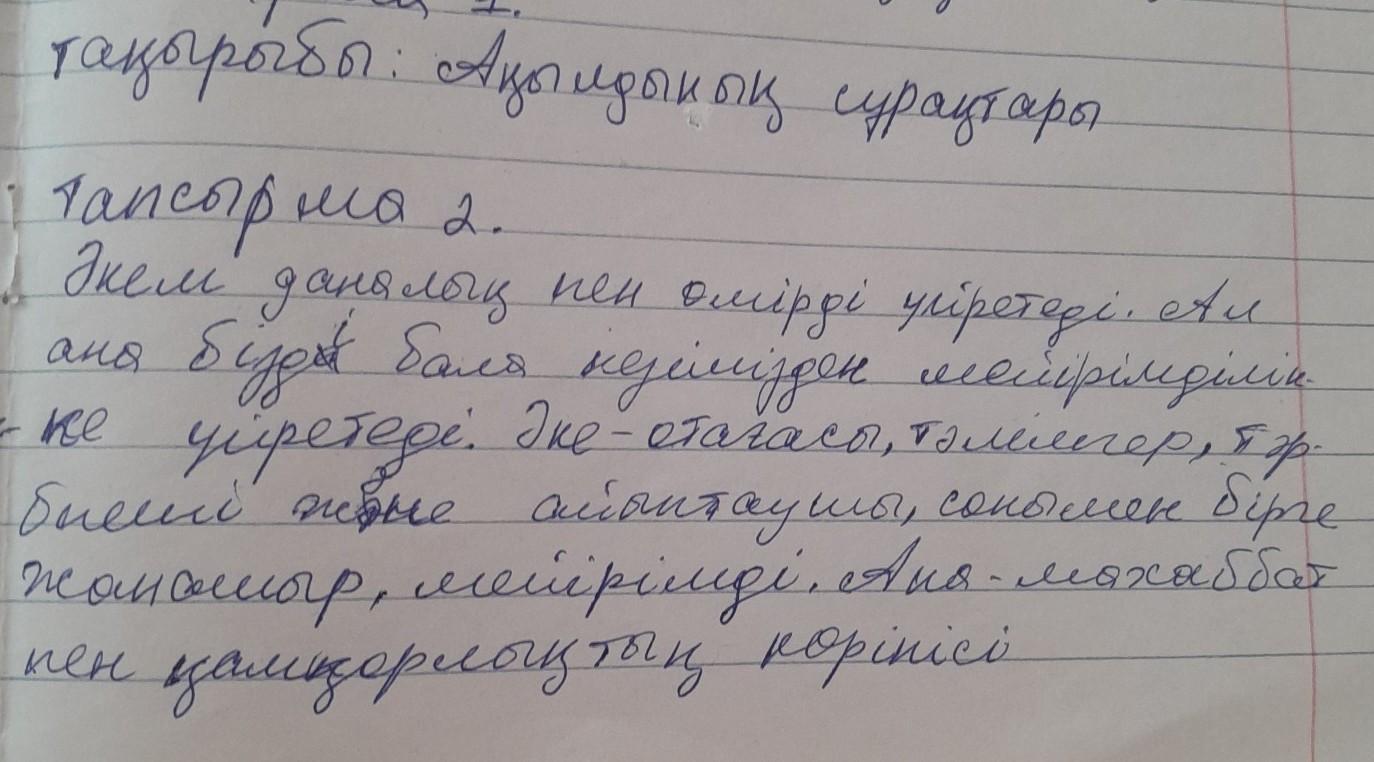 тақырыбы: Ақылдының сұрақтары
тапсырма 2.
Әкем даналық пен өмірді үйретеді. Ал
ана бізді бала кезімізден мейірімділік-
- ке үйретеді. Әке - отағасы, тәлімгер, тәр-
биеші және айыптаушы, сонымен бірге
жанашыр, мейірімді. Ана - махаббат
пен қамқорлықтың көрінісі